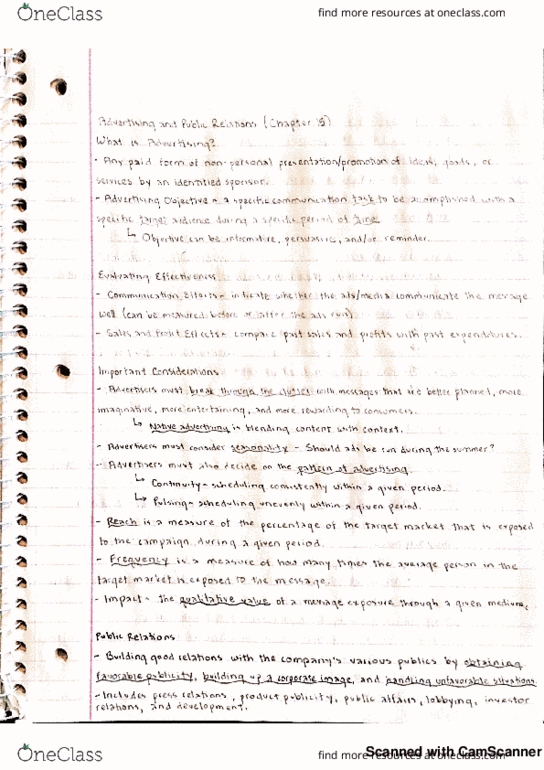 OneClass
find more resources at oneclass.com
Advertising and Public Relations (Chapter 15)
What is Advertising?
- Any paid form of non-personal presentation/promotion of ideas, goods, or
services by an identified sponsor.
- Advertising Objective - a specific communication task to be accomplished with a
specific target audience during a specific period of time
↳ Objective can be informative, persuasive, and/or reminder.
Evaluating Effectiveness
- Communication Effects - indicate whether the ads/media communicate the message
well (can be measured before or after the ads run)
- Sales and Profit Effects - compare past sales and profits with past expenditures.
Important Considerations
- Advertisers must break through the clutter with messages that are better planned, more
imaginative, more entertaining, and more rewarding to consumers.
↳ Native advertising is blending content with context.
- Advertisers must consider seasonality - Should ads be run during the summer?
- Advertisers must also decide on the pattern of advertising.
↳ Continuity - scheduling consistently within a given period.
↳ Pulsing - scheduling unevenly within a given period.
- Reach is a measure of the percentage of the target market that is exposed
to the campaign during a given period.
- Frequency is a measure of how many times the average person in the
target market is exposed to the message.
- Impact - the qualitative value of a message exposure through a given medium.
Public Relations
- Building good relations with the company's various publics by obtaining
favorable publicity, building up a corporate image, and handling unfavorable situations.
- Includes press relations, product publicity, public affairs, lobbying, investor
relations, and development.
Scanned with CamScanner
OneClass
find more resources at oneclass.com